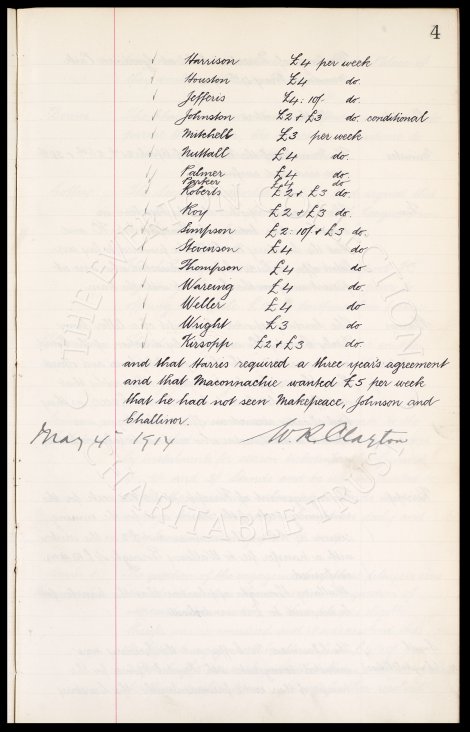 4
Harrison £4 per week
Houston £4 do.
Jefferis £4:10/- do.
Johnston £2 + £3 do. conditional
Mitchell £3 per week
Nuttall £4 do.
Palmer £4 do.
Parker £4 do
Roberts £2 + £3 do.
Roy £2 + £3 do.
Simpson £2:10/- + £3 do.
Stevenson £4 do.
Thompson £4 do.
Wareing £4 do
Weller £4 do
Wright £3 do
Kirsopp £2 + £3 do.
and that Harris required a three year's agreement
and that Maconnachie wanted £5 per week
that he had not seen Makepeace, Johnson and
Challinor.
May 4th 1914 W R Clayton
THE NEVILLE COLLECTION
CHARITABLE TRUST